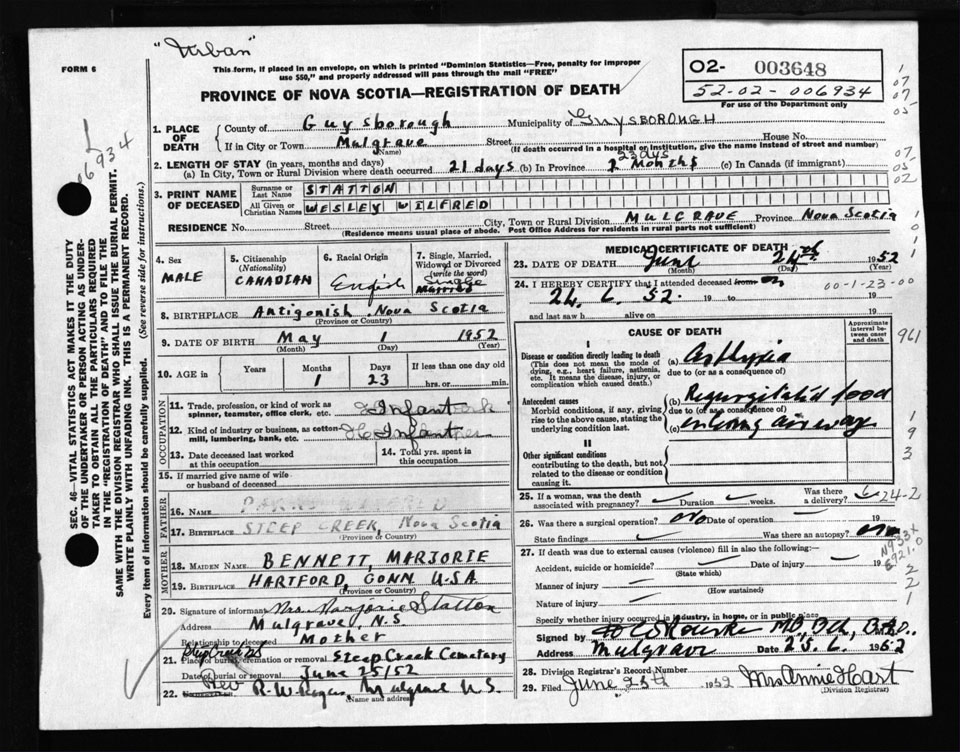 "Urban"
FORM 6
This form, if placed in an envelope, on which is printed "Dominion Statistics—Free, penalty for improper
use $50," and properly addressed will pass through the mail "FREE"
PROVINCE OF NOVA SCOTIA—REGISTRATION OF DEATH
02- 003648
52-02-006934
For use of the Department only
06934
1. PLACE OF DEATH
County of Guysborough Municipality of GUYSBOROUGH
If in City or Town Mulgrave Street House No.
(Name) (If death occurred in a hospital or institution, give the name instead of street and number)
2. LENGTH OF STAY (in years, months and days)
23 days
(a) In City, Town or Rural Division where death occurred 21 days (b) In Province Months (c) In Canada (if immigrant)
3. PRINT NAME OF DECEASED
Surname or Last Name STATTON
All Given or Christian Names WESLEY WILFRED
RESIDENCE No. Street City, Town or Rural Division MULGRAVE Province Nova Scotia
(Residence means usual place of abode. Post Office Address for residents in rural parts not sufficient)
4. Sex MALE
5. Citizenship (Nationality) CANADIAN
6. Racial Origin English
7. Single, Married, Widowed or Divorced (write the word) Single
Married
8. BIRTHPLACE Antigonish Nova Scotia
(Province or Country)
9. DATE OF BIRTH May 1 1952
(Month) (Day) (Year)
10. AGE in Years Months 1 Days 23 If less than one day old hrs. or min.
OCCUPATION
11. Trade, profession, or kind of work as spinner, teamster, office clerk, etc. Infant
12. Kind of industry or business, as cotton mill, lumbering, bank, etc. Infant
13. Date deceased last worked at this occupation
14. Total yrs. spent in this occupation
15. If married give name of wife or husband of deceased
FATHER
16. NAME
17. BIRTHPLACE STEEP CREEK, Nova Scotia
(Province or Country)
MOTHER
18. MAIDEN NAME BENNETT, MARJORIE
19. BIRTHPLACE HARTFORD, CONN. U.S.A.
(Province or Country)
20. Signature of informant Mrs. Marjorie Statton
Address Mulgrave, N.S.
Relationship to deceased Mother
21. Place of burial, cremation or removal Steep Creek Cemetery
Date of burial or removal June 25/52
22. Rev R.W. Mulgrave N.S.
(Name and address)
MEDICAL CERTIFICATE OF DEATH
23. DATE OF DEATH June 24th 1952
(Month) (Day) (Year)
24. I HEREBY CERTIFY that I attended deceased from on 00-1-23-00
24. 6. 52. 19 to 19
and last saw h alive on 19
CAUSE OF DEATH
Approximate interval between onset and death
I
Disease or condition directly leading to death
(This does not mean the mode of dying, e.g., heart failure, asthenia, etc. It means the disease, injury, or complication which caused death.)
(a) Asthyxia
due to (or as a consequence of)
Antecedent causes
Morbid conditions, if any, giving rise to the above cause, stating the underlying condition last.
(b) Regurgitat'd food
due to (or as a consequence of)
(c) entering airway
II
Other significant conditions
contributing to the death, but not related to the disease or condition causing it.
961
25. If a woman, was the death associated with pregnancy? Duration weeks. Was there a delivery? 24-2
26. Was there a surgical operation? No Date of operation 19
State findings Was there an autopsy?
27. If death was due to external causes (violence) fill in also the following:—
Accident, suicide or homicide? Date of injury 19
(State which)
N933X
E921.0
Manner of injury
(How sustained)
Nature of injury
Specify whether injury occurred in industry, in home, or in public place
Signed by
Address Mulgrave Date 25. 6. 1952
28. Division Registrar's Record Number
29. Filed June 25th 1952 Mrs Annie Hart
(Division Registrar)
SEC. 46—VITAL STATISTICS ACT MAKES IT THE DUTY
OF THE UNDERTAKER OR PERSON ACTING AS UNDERTAKER TO OBTAIN ALL THE PARTICULARS REQUIRED
IN THE "REGISTRATION OF DEATH" AND TO FILE THE
SAME WITH THE DIVISION REGISTRAR WHO SHALL ISSUE THE BURIAL PERMIT.
WRITE PLAINLY WITH UNFADING INK. THIS IS A PERMANENT RECORD.
Every item of information should be carefully supplied. (See reverse side for instructions.)